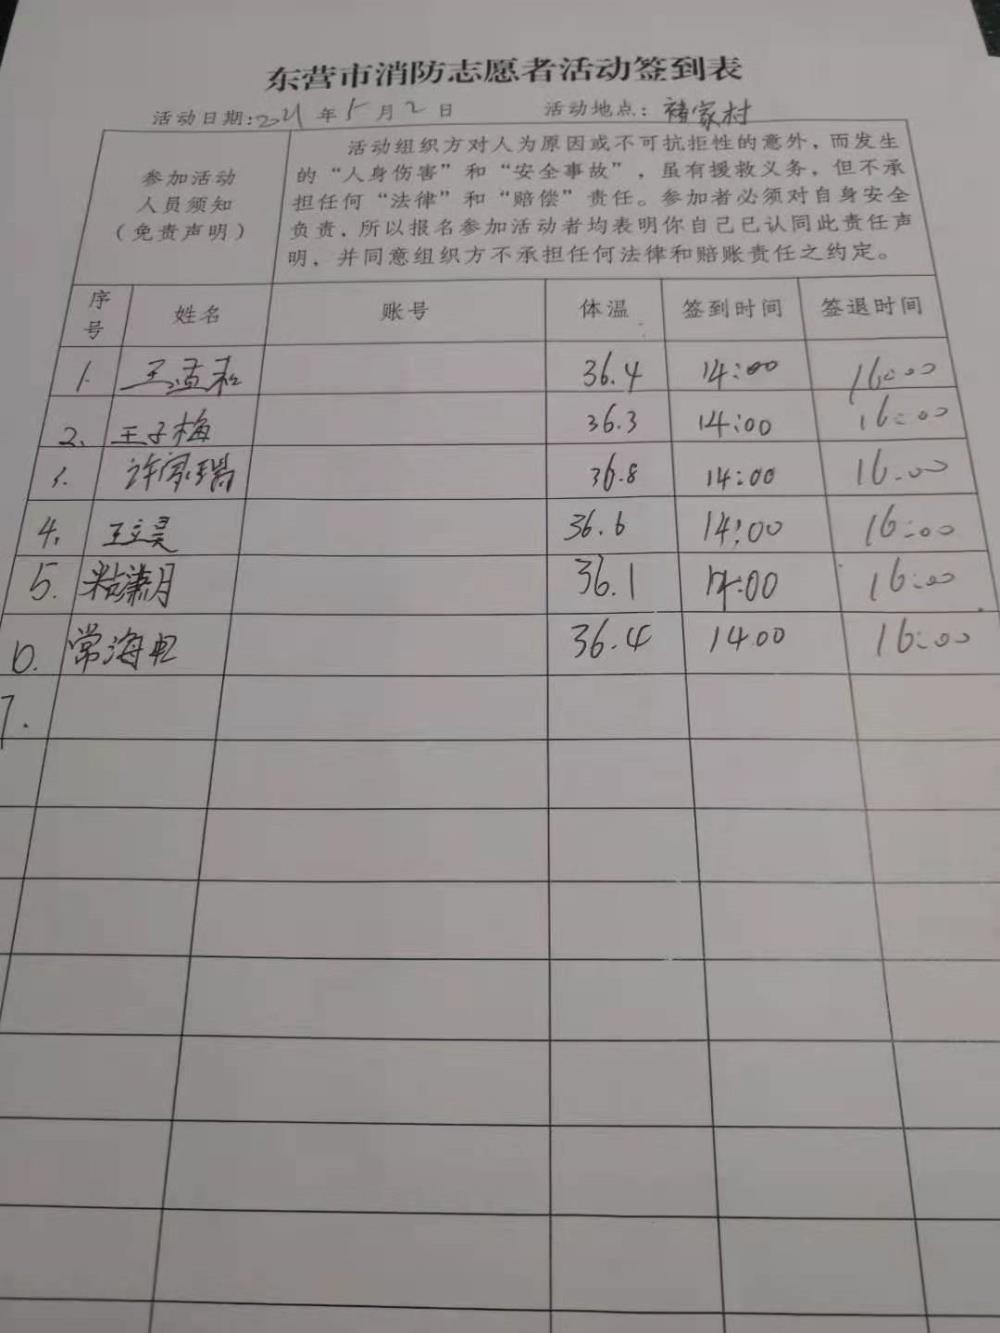 东营市消防志愿者活动签到表
活动日期:2021年5月2日 活动地点:褚家村
参加活动
人员须知
(免责声明)
活动组织方对人为原因或不可抗拒性的意外,而发生
的“人身伤害”和“安全事故”,虽有援救义务,但不承
担任何“法律”和“赔偿”责任。参加者必须对自身安全
负责,所以报名参加活动者均表明你自己已认同此责任声
明,并同意组织方不承担任何法律和赔账责任之约定。
序号 姓名 账号 体温 签到时间 签退时间
1. 王孟 36.4 14:00 16:00
2. 王子梅 36.3 14:00 16:00
3. 许家瑞 36.8 14:00 16:00
4. 王立昊 36.6 14:00 16:00
5. 粘潇月 36.1 14:00 16:00
6. 常海 36.4 14:00 16:00
7.